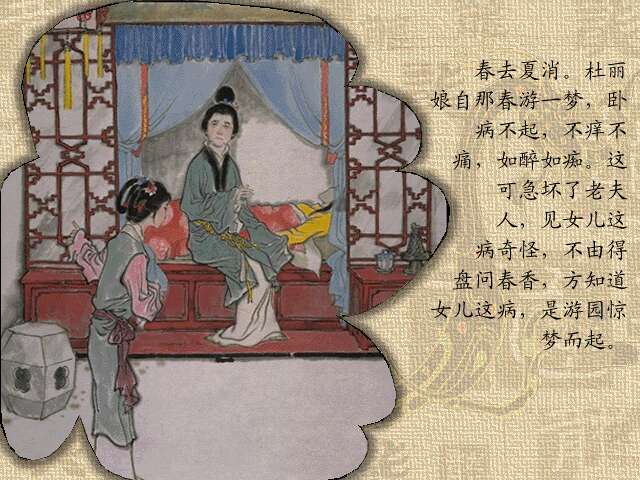 春去夏消。杜丽
娘自那春游一梦，卧
病不起，不痒不
痛，如醉如痴。这
可急坏了老夫
人，见女儿这
病奇怪，不由得
盘问春香，方知道
女儿这病，是游园惊
梦而起。